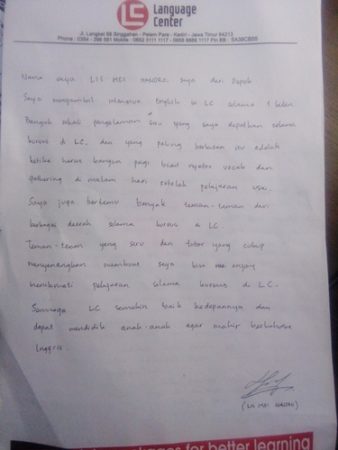 LC Language Center
Jl. Langkat 88 Singgahan - Pelem Pare - Kediri - Jawa Timur 64213
Nama saya LIS MEI saya dari Depok
Saya mengambil intensive English di LC selama 1 bulan
Banyak sekali pengalaman seru yang saya dapatkan selama
kursus di LC. dan yang paling berkesan itu adalah
ketika harus bangun pagi buat nyetor vocab dan
gathering di malam hari setelah pelajaran usai.
Saya juga bertemu banyak teman-teman dari
berbagai daerah selama kursus di LC
Teman-teman yang seru dan tutor yang cukup
menyenangkan membuat saya bisa enjoy
menikmati pelajaran selama kursus di LC.
Semoga LC semakin baik kedepannya dan
dapat mendidik anak-anak agar mahir berbahasa
Inggris.
(LIS MEI
for better learning